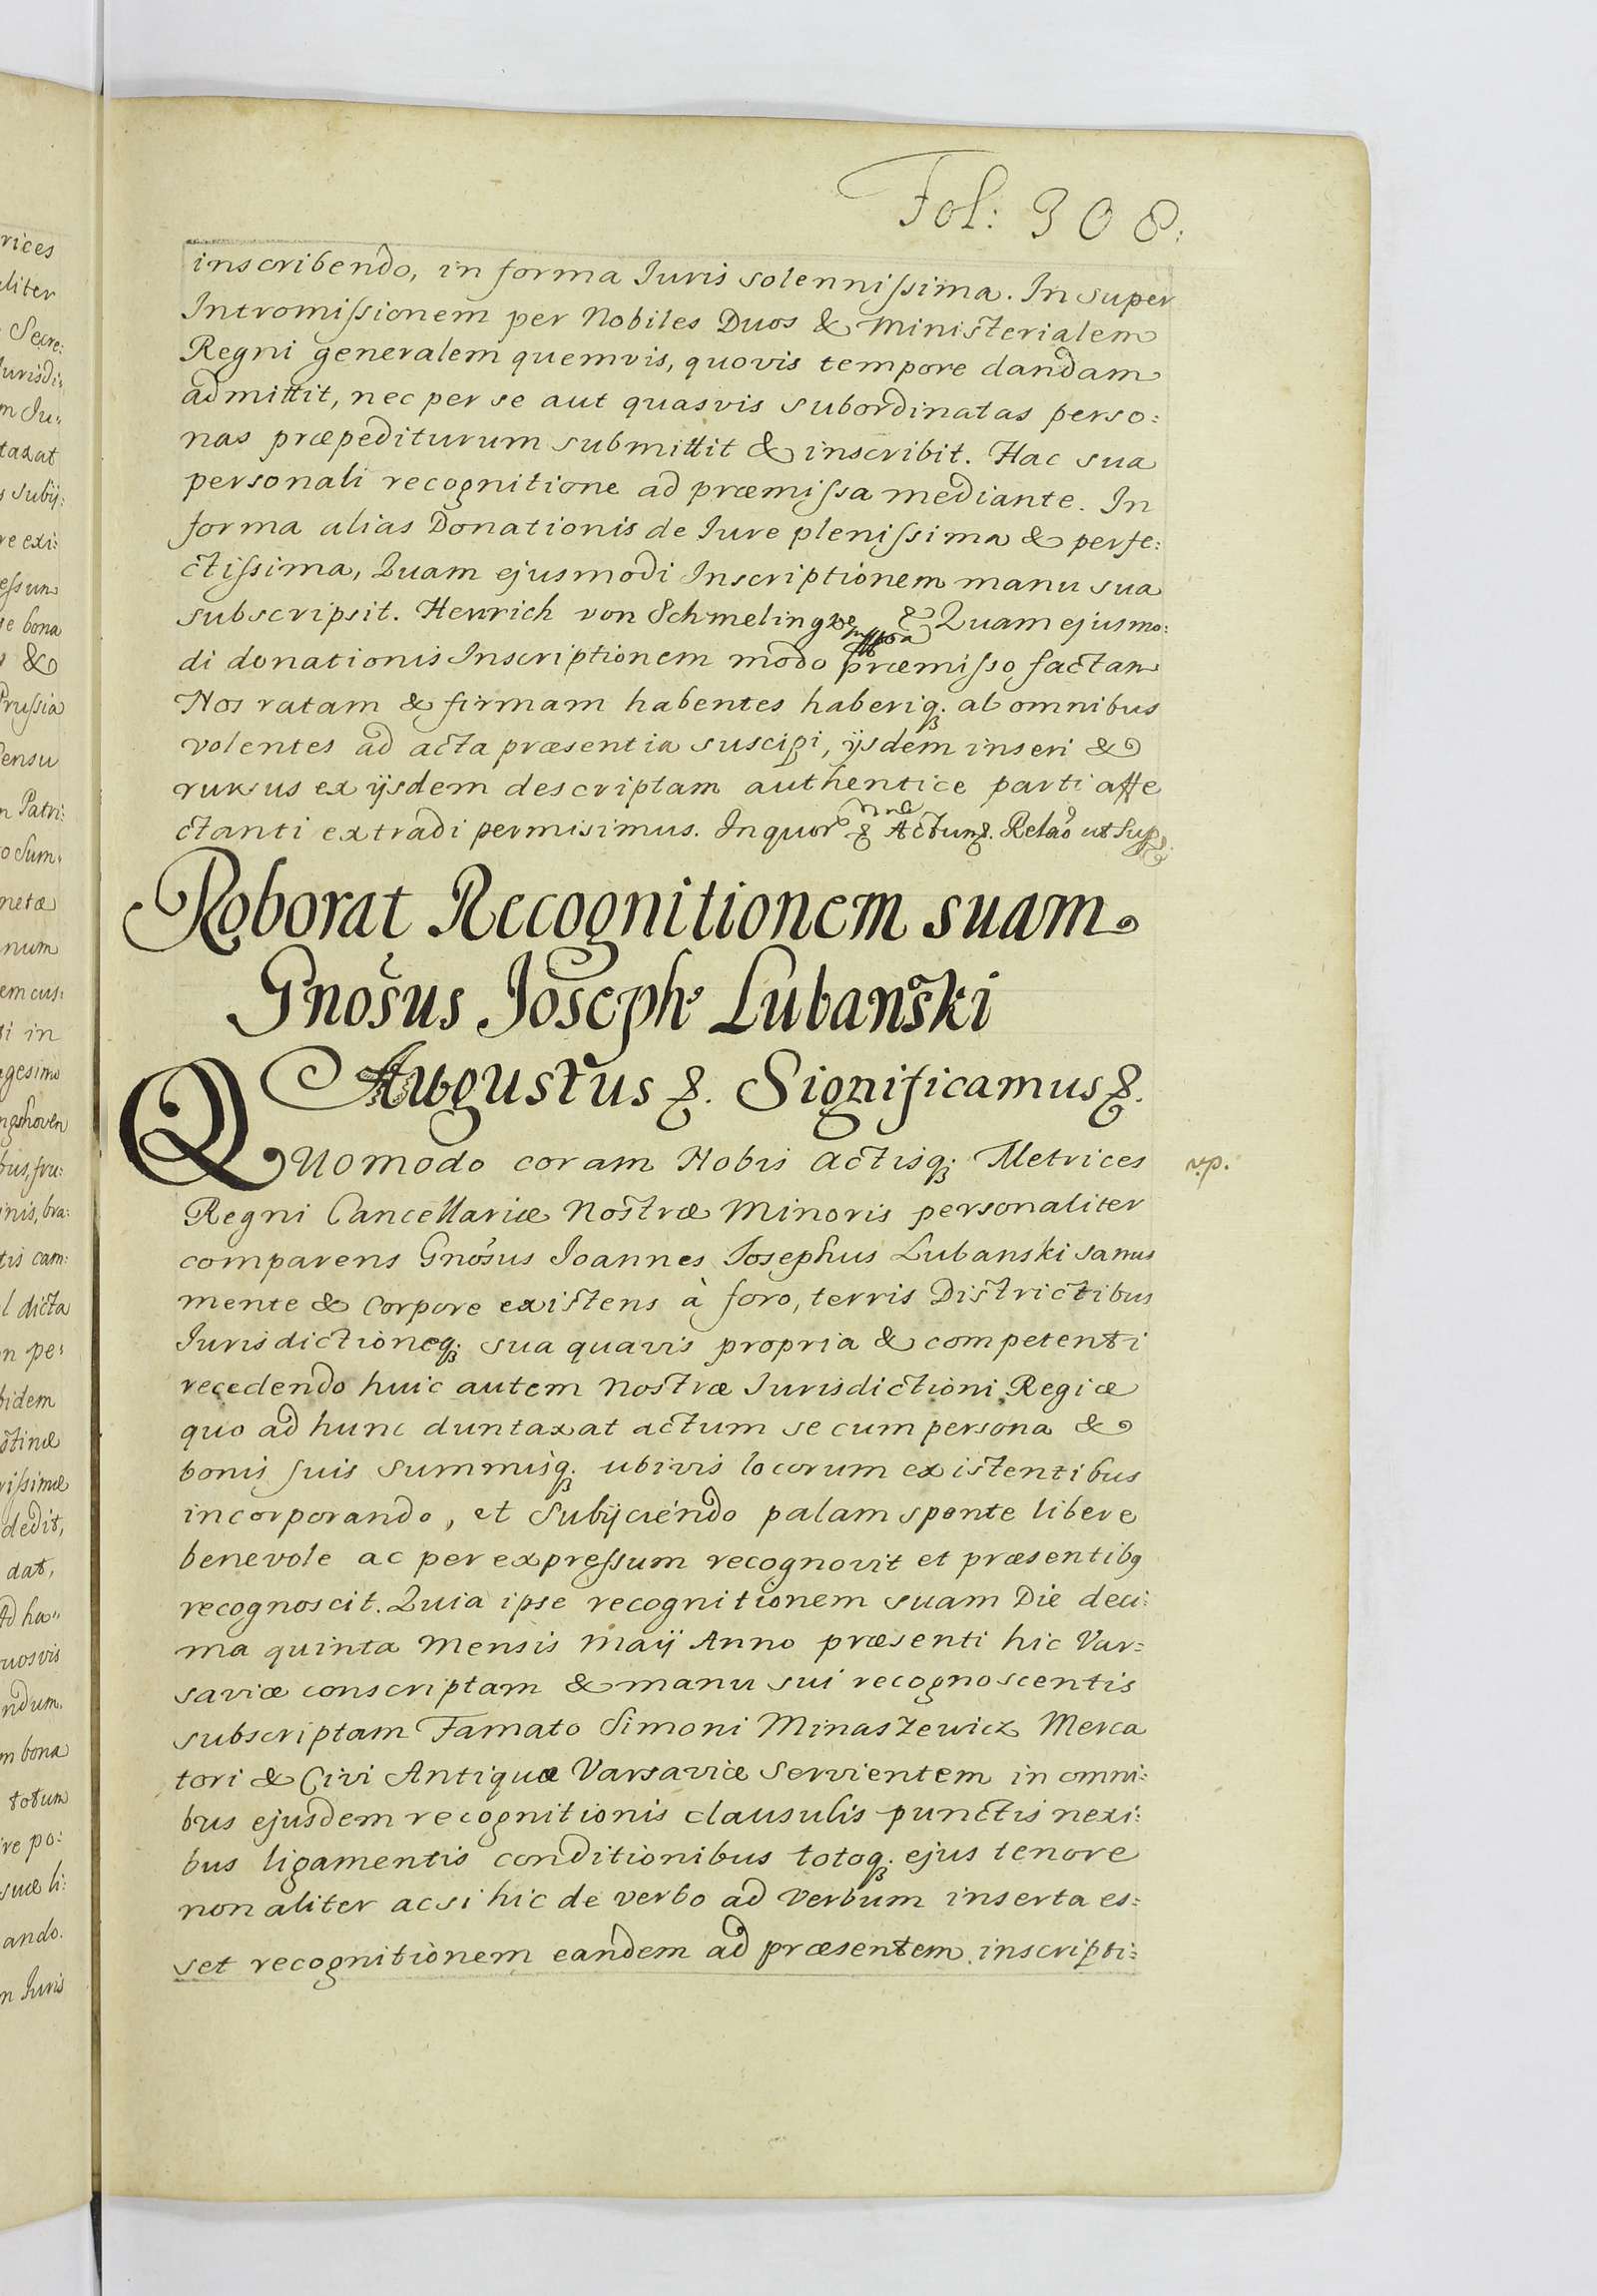 Fol: 308.
inscribendo, in forma Iuris solenniſsima. In super
Intromiſsionem per Nobiles Duos & Ministerialem
Regni generalem quemvis, quovis tempore dandam
admittit, nec per se aut quasvis subordinatas perso:
nas præpediturum submittit & inscribit. Hac sua
personali recognitione ad præmiſsa mediante. In
forma alias Donationis de Iure pleniſsima & perfe:
ctiſsima, Quam ejusmodi Inscriptionem manu sua
subscripsit. Henrich von Schmeling Quam ejusmo:
di donationis Inscriptionem modo præmiſso factam
Nos ratam & firmam habentes haberiq; ab omnibus
volentes ad acta præsentia suscipi, ijsdem inseri &
rursus ex ijsdem descriptam authentice parti affe
ctanti extradi permisimus. In quor Actum. Relão ut Sup
Roborat Recognitionem suam
Gnosus Joseph Lubański
Augustus &. Significamus &.
QUomodo coram Nobis Actisq; Metrices
v.p.
Regni Cancellariæ Nostræ Minoris personaliter
comparens Gnosus Ioannes Iosephus Lubanski sanus
mente & Corpore existens à foro, terris Districtibus
Iurisdictioneq; sua quavis propria & competenti
recedendo huic autem Nostræ Iurisdictioni Regiæ
quo ad hunc duntaxat actum se cum persona &
bonis suis Summisq; ubivis locorum existentibus
incorporando, et Subijciendo palam sponte libere
benevole ac per expreſsum recognovit et præsentibꝰ
recognoscit. Quia ipse recognitionem suam Die deci:
ma quinta Mensis Maij Anno præsenti hic Var:
saviæ conscriptam & manu sui recognoscentis
subscriptam Famato Simoni Minaszewicz Merca
tori & Civi Antiquæ Varsaviæ Servientem in omni:
bus ejusdem recognitionis clausulis punctis nexi:
bus ligamentis conditionibus totoq; ejus tenore
non aliter acsi hic de verbo ad verbum inserta es:
set recognitionem eandem ad præsentem inscripti: